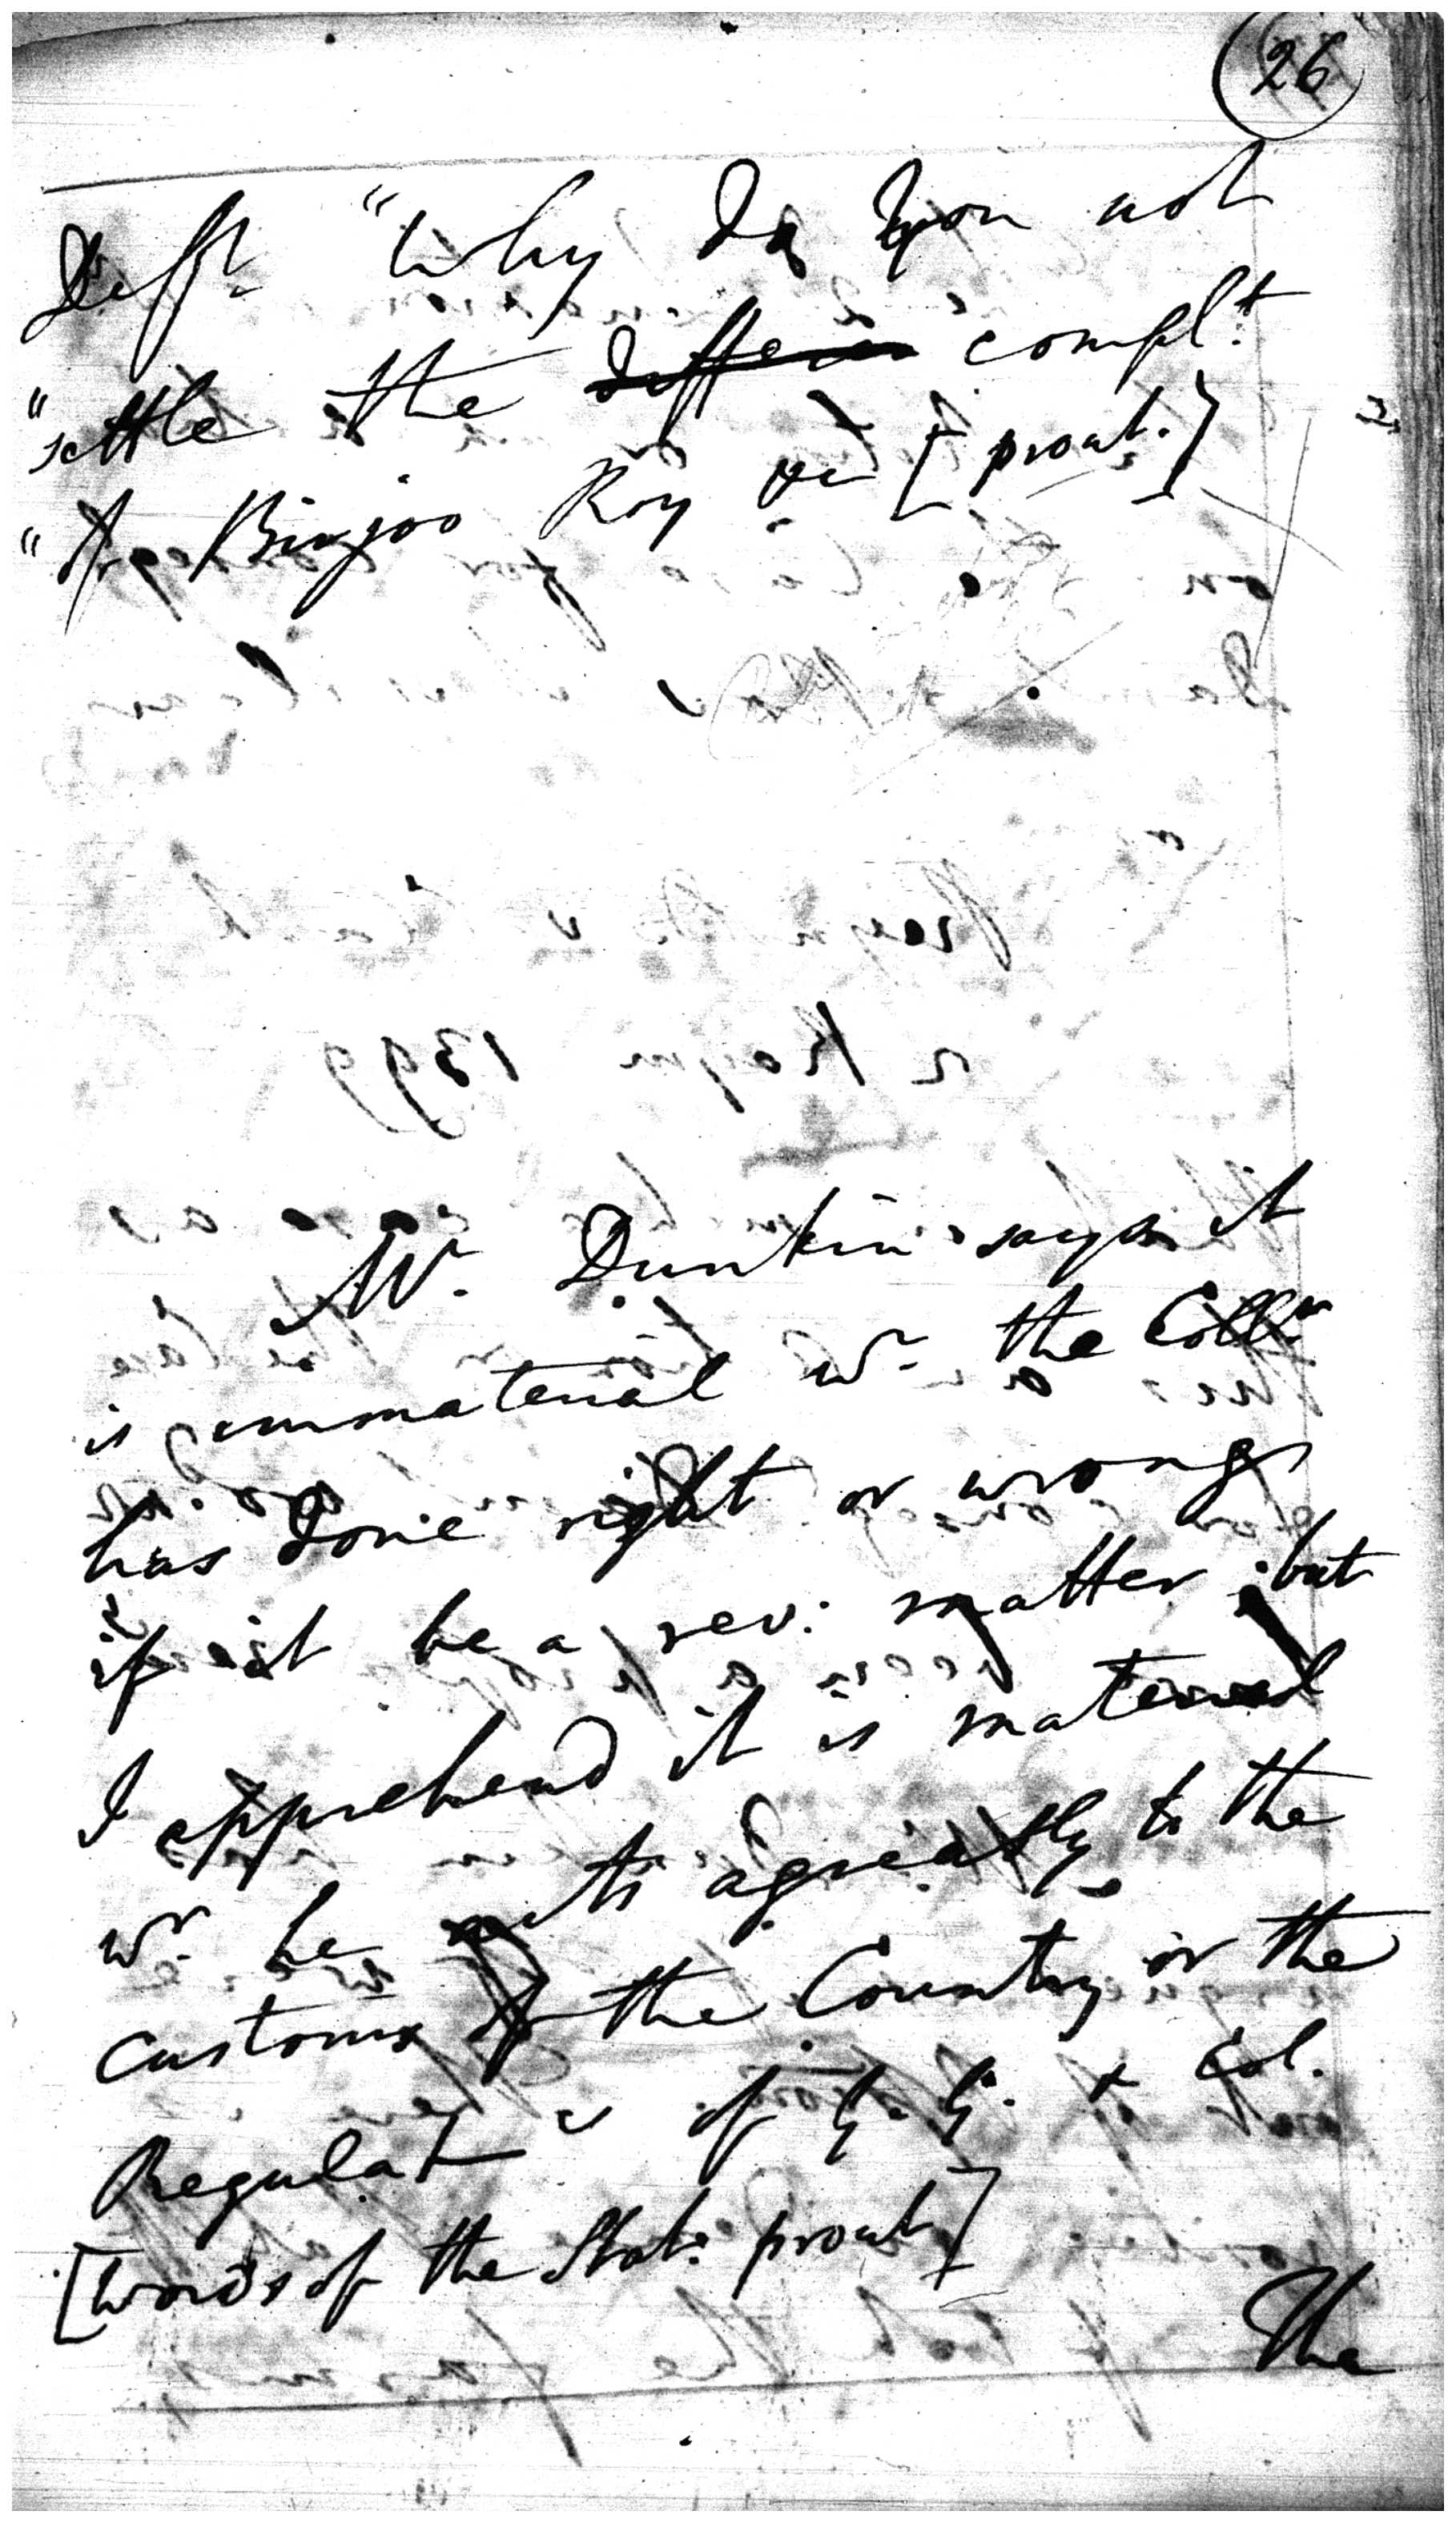 26
Deft. "Why do you not
"settle the differen compl.t
"of Binjoo Roy &c [prout.]
Mr. Dunkin says it
is immaterial wr. the Collr.
has done right or wrong
if it be a rev: matter; but
I apprehend it is material
wr. he acts agreably to the
Customs of the Country or the
Regulatns of G. G. & Col.
[Words of the Stat: prout]
The